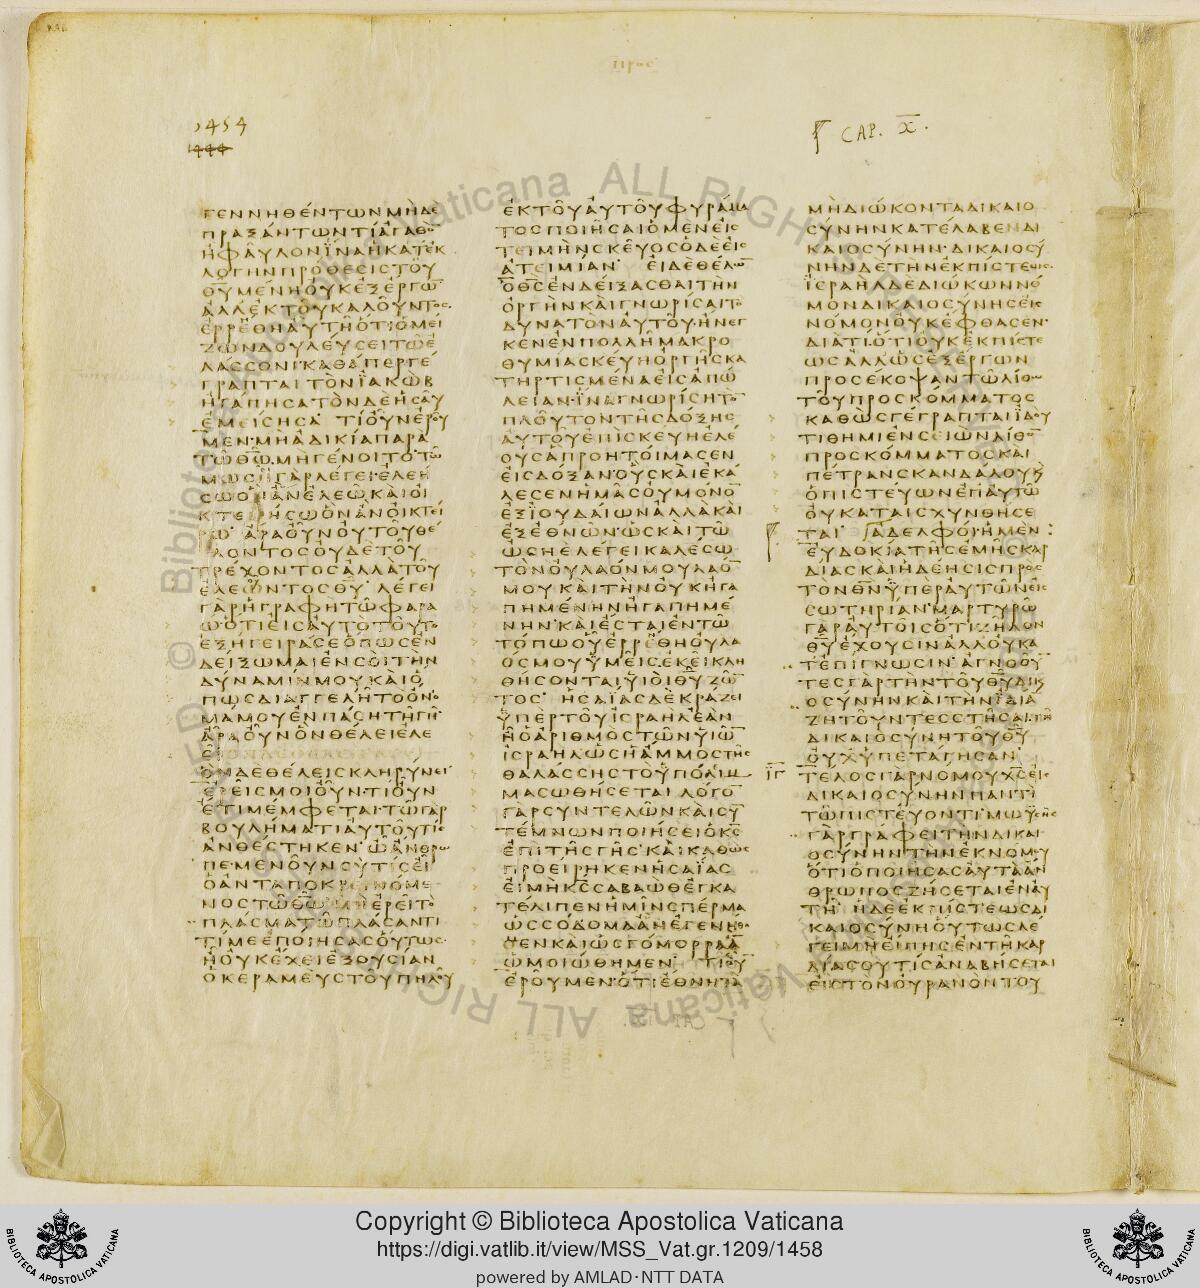 Προς
1454
1444
CAP. X.
ΓΕΝΝΗΘΕΝΤΩΝ ΜΗΔΕ
ΠΡΑΞΑΝΤΩΝ ΤΙ ΑΓΑΘΟ
Η ΦΑΥΛΟΝ ΙΝΑ Η ΚΑΤ ΕΚ
ΛΟΓΗΝ ΠΡΟΘΕΣΙΣ ΤΟΥ
ΘΥ ΜΕΝΗ ΟΥΚ ΕΞ ΕΡΓΩ
ΑΛΛ ΕΚ ΤΟΥ ΚΑΛΟΥΝΤΟΣ
ΕΡΡΕΘΗ ΑΥΤΗ ΟΤΙ Ο ΜΕΙ
ΖΩΝ ΔΟΥΛΕΥΣΕΙ ΤΩ Ε
ΛΑΣΣΟΝΙ ΚΑΘΑΠΕΡ ΓΕ
ΓΡΑΠΤΑΙ ΤΟΝ ΙΑΚΩΒ
ΗΓΑΠΗΣΑ ΤΟΝ ΔΕ ΗΣΑΥ
ΕΜΕΙΣΗΣΑ ΤΙ ΟΥΝ ΕΡΟΥ
ΜΕΝ ΜΗ ΑΔΙΚΙΑ ΠΑΡΑ
ΤΩ ΘΩ ΜΗ ΓΕΝΟΙΤΟ ΤΩ
ΜΩΣΗ ΓΑΡ ΛΕΓΕΙ ΕΛΕΗ
ΣΩ ΟΝ ΑΝ ΕΛΕΩ ΚΑΙ ΟΙ
ΚΤΕΙΡΗΣΩ ΟΝ ΑΝ ΟΙΚΤΕΙ
ΡΩ ΑΡΑ ΟΥΝ ΟΥ ΤΟΥ ΘΕ
ΛΟΝΤΟΣ ΟΥΔΕ ΤΟΥ
ΤΡΕΧΟΝΤΟΣ ΑΛΛΑ ΤΟΥ
ΕΛΕΩΝΤΟΣ ΘΥ ΛΕΓΕΙ
ΓΑΡ Η ΓΡΑΦΗ ΤΩ ΦΑΡΑ
Ω ΟΤΙ ΕΙΣ ΑΥΤΟ ΤΟΥΤΟ
ΕΞΗΓΕΙΡΑ ΣΕ ΟΠΩΣ ΕΝ
ΔΕΙΞΩΜΑΙ ΕΝ ΣΟΙ ΤΗΝ
ΔΥΝΑΜΙΝ ΜΟΥ ΚΑΙ Ο
ΠΩΣ ΔΙΑΓΓΕΛΗ ΤΟ ΟΝΟ
ΜΑ ΜΟΥ ΕΝ ΠΑΣΗ ΤΗ ΓΗ
ΑΡΑ ΟΥΝ ΟΝ ΘΕΛΕΙ ΕΛΕ
ΕΙ
ΟΝ ΔΕ ΘΕΛΕΙ ΣΚΛΗΡΥΝΕΙ
ΕΡΕΙΣ ΜΟΙ ΟΥΝ ΤΙ ΟΥΝ
ΕΤΙ ΜΕΜΦΕΤΑΙ ΤΩ ΓΑΡ
ΒΟΥΛΗΜΑΤΙ ΑΥΤΟΥ ΤΙΣ
ΑΝΘΕΣΤΗΚΕΝ Ω ΑΝΘΡΩ
ΠΕ ΜΕΝΟΥΝ ΣΥ ΤΙΣ ΕΙ
Ο ΑΝΤΑΠΟΚΡΕΙΝΟΜΕ
ΝΟΣ ΤΩ ΘΩ ΜΗ ΕΡΕΙ ΤΟ
ΠΛΑΣΜΑ ΤΩ ΠΛΑΣΑΝΤΙ
ΤΙ ΜΕ ΕΠΟΙΗΣΑΣ ΟΥΤΩΣ
Η ΟΥΚ ΕΧΕΙ ΕΞΟΥΣΙΑΝ
Ο ΚΕΡΑΜΕΥΣ ΤΟΥ ΠΗΛΟΥ
ΕΚ ΤΟΥ ΑΥΤΟΥ ΦΥΡΑΜΑ
ΤΟΣ ΠΟΙΗΣΑΙ Ο ΜΕΝ ΕΙΣ
ΤΕΙΜΗΝ ΣΚΕΥΟΣ Ο ΔΕ ΕΙΣ
ΑΤΕΙΜΙΑΝ ΕΙ ΔΕ ΘΕΛΩ
Ο ΘΣ ΕΝΔΕΙΞΑΣΘΑΙ ΤΗΝ
ΟΡΓΗΝ ΚΑΙ ΓΝΩΡΙΣΑΙ ΤΟ
ΔΥΝΑΤΟΝ ΑΥΤΟΥ ΗΝΕΓ
ΚΕΝ ΕΝ ΠΟΛΛΗ ΜΑΚΡΟ
ΘΥΜΙΑ ΣΚΕΥΗ ΟΡΓΗΣ ΚΑ
ΤΗΡΤΙΣΜΕΝΑ ΕΙΣ ΑΠΩ
ΛΕΙΑΝ ΙΝΑ ΓΝΩΡΙΣΗ ΤΟ
ΠΛΟΥΤΟΝ ΤΗΣ ΔΟΞΗΣ
ΑΥΤΟΥ ΕΠΙ ΣΚΕΥΗ ΕΛΕ
ΟΥΣ Α ΠΡΟΗΤΟΙΜΑΣΕΝ
ΕΙΣ ΔΟΞΑΝ ΟΥΣ ΚΑΙ ΕΚΑ
ΛΕΣΕΝ ΗΜΑΣ ΟΥ ΜΟΝΟ
ΕΞ ΙΟΥΔΑΙΩΝ ΑΛΛΑ ΚΑΙ
ΕΞ ΕΘΝΩΝ ΩΣ ΚΑΙ ΤΩ
ΩΣΗΕ ΛΕΓΕΙ ΚΑΛΕΣΩ
ΤΟΝ ΟΥ ΛΑΟΝ ΜΟΥ ΛΑΟ
ΜΟΥ ΚΑΙ ΤΗΝ ΟΥΚ ΗΓΑ
ΠΗΜΕΝΗΝ ΗΓΑΠΗΜΕ
ΝΗΝ ΚΑΙ ΕΣΤΑΙ ΕΝ ΤΩ
ΤΟΠΩ ΟΥ ΕΡΡΕΘΗ ΟΥ ΛΑ
ΟΣ ΜΟΥ ΥΜΕΙΣ ΕΚΕΙ ΚΛΗ
ΘΗΣΟΝΤΑΙ ΥΙΟΙ ΘΥ ΖΩ
ΤΟΣ ΗΣΑΙΑΣ ΔΕ ΚΡΑΖΕΙ
ΥΠΕΡ ΤΟΥ ΙΣΡΑΗΛ ΕΑΝ
Η Ο ΑΡΙΘΜΟΣ ΤΩΝ ΥΙΩ
ΙΣΡΑΗΛ ΩΣ Η ΑΜΜΟΣ ΤΗΣ
ΘΑΛΑΣΣΗΣ ΤΟ ΥΠΟΛΙΜ
ΜΑ ΣΩΘΗΣΕΤΑΙ ΛΟΓΟ
ΓΑΡ ΣΥΝΤΕΛΩΝ ΚΑΙ ΣΥ
ΤΕΜΝΩΝ ΠΟΙΗΣΕΙ Ο ΚΣ
ΕΠΙ ΤΗΣ ΓΗΣ ΚΑΙ ΚΑΘΩΣ
ΠΡΟΕΙΡΗΚΕΝ ΗΣΑΙΑΣ
ΕΙ ΜΗ ΚΣ ΣΑΒΑΩΘ ΕΓΚΑ
ΤΕΛΙΠΕΝ ΗΜΙΝ ΣΠΕΡΜΑ
ΩΣ ΣΟΔΟΜΑ ΑΝ ΕΓΕΝΗΘΗ
ΜΕΝ ΚΑΙ ΩΣ ΓΟΜΟΡΡΑ Α
ΩΜΟΙΩΘΗΜΕΝ ΤΙ ΟΥ
ΕΡΟΥΜΕΝ ΟΤΙ ΕΘΝΗ ΤΑ
ΜΗ ΔΙΩΚΟΝΤΑ ΔΙΚΑΙΟ
ΣΥΝΗΝ ΚΑΤΕΛΑΒΕΝ ΔΙ
ΚΑΙΟΣΥΝΗΝ ΔΙΚΑΙΟΣΥ
ΝΗΝ ΔΕ ΤΗΝ ΕΚ ΠΙΣΤΕΩΣ
ΙΣΡΑΗΛ ΔΕ ΔΙΩΚΩΝ ΝΟ
ΜΟΝ ΔΙΚΑΙΟΣΥΝΗΣ ΕΙΣ
ΝΟΜΟΝ ΟΥΚ ΕΦΘΑΣΕΝ
ΔΙΑ ΤΙ ΟΤΙ ΟΥΚ ΕΚ ΠΙΣΤΕ
ΩΣ ΑΛΛ ΩΣ ΕΞ ΕΡΓΩΝ
ΠΡΟΣΕΚΟΨΑΝ ΤΩ ΛΙΘΩ
ΤΟΥ ΠΡΟΣΚΟΜΜΑΤΟΣ
ΚΑΘΩΣ ΓΕΓΡΑΠΤΑΙ ΙΔΟΥ
ΤΙΘΗΜΙ ΕΝ ΣΕΙΩΝ ΛΙΘΟ
ΠΡΟΣΚΟΜΜΑΤΟΣ ΚΑΙ
ΠΕΤΡΑΝ ΣΚΑΝΔΑΛΟΥ Κ
Ο ΠΙΣΤΕΥΩΝ ΕΠ ΑΥΤΩ
ΟΥ ΚΑΤΑΙΣΧΥΝΘΗΣΕ
ΤΑΙ ΑΔΕΛΦΟΙ Η ΜΕΝ
ΕΥΔΟΚΙΑ ΤΗΣ ΕΜΗΣ ΚΑΡ
ΔΙΑΣ ΚΑΙ Η ΔΕΗΣΙΣ ΠΡΟΣ
ΤΟΝ ΘΝ ΥΠΕΡ ΑΥΤΩΝ ΕΙΣ
ΣΩΤΗΡΙΑΝ ΜΑΡΤΥΡΩ
ΓΑΡ ΑΥΤΟΙΣ ΟΤΙ ΖΗΛΟΝ
ΘΥ ΕΧΟΥΣΙΝ ΑΛΛ ΟΥ ΚΑ
Τ ΕΠΙΓΝΩΣΙΝ ΑΓΝΟΟΥ
ΤΕΣ ΓΑΡ ΤΗΝ ΤΟΥ ΘΥ ΔΙΚ
ΟΣΥΝΗΝ ΚΑΙ ΤΗΝ ΙΔΙΑ
ΖΗΤΟΥΝΤΕΣ ΣΤΗΣΑΙ ΤΗ
ΔΙΚΑΙΟΣΥΝΗ ΤΟΥ ΘΥ
ΟΥΧ ΥΠΕΤΑΓΗΣΑΝ
ΤΕΛΟΣ ΓΑΡ ΝΟΜΟΥ ΧΣ ΕΙΣ
ΔΙΚΑΙΟΣΥΝΗΝ ΠΑΝΤΙ
ΤΩ ΠΙΣΤΕΥΟΝΤΙ ΜΩΥΣΗΣ
ΓΑΡ ΓΡΑΦΕΙ ΤΗΝ ΔΙΚΑΙ
ΟΣΥΝΗΝ ΤΗΝ ΕΚ ΝΟΜΟΥ
ΟΤΙ Ο ΠΟΙΗΣΑΣ ΑΥΤΑ ΑΝ
ΘΡΩΠΟΣ ΖΗΣΕΤΑΙ ΕΝ ΑΥ
ΤΗ Η ΔΕ ΕΚ ΠΙΣΤΕΩΣ ΔΙ
ΚΑΙΟΣΥΝΗ ΟΥΤΩΣ ΛΕ
ΓΕΙ ΜΗ ΕΙΠΗΣ ΕΝ ΤΗ ΚΑΡ
ΔΙΑ ΣΟΥ ΤΙΣ ΑΝΑΒΗΣΕΤΑΙ
ΕΙΣ ΤΟΝ ΟΥΡΑΝΟΝ ΤΟΥ
Copyright © Biblioteca Apostolica Vaticana
https://digi.vatlib.it/view/MSS_Vat.gr.1209/1458
powered by AMLAD·NTT DATA
BIBLIOTECA APOSTOLICA VATICANA
BIBLIOTECA APOSTOLICA VATICANA